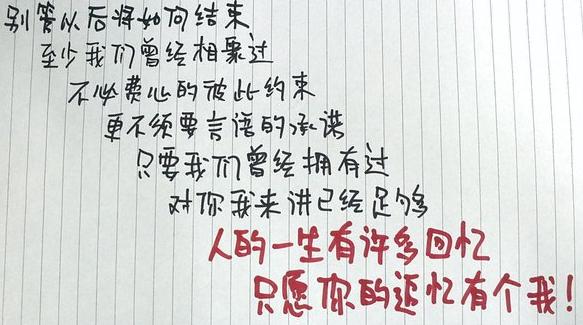 别管以后将如何结束
至少我们曾经相聚过
不必费心的彼此约束
更不须要言语的承诺
只要我们曾经拥有过
对你我来讲已经足够
人的一生有许多回忆
只愿你的追忆有个我！